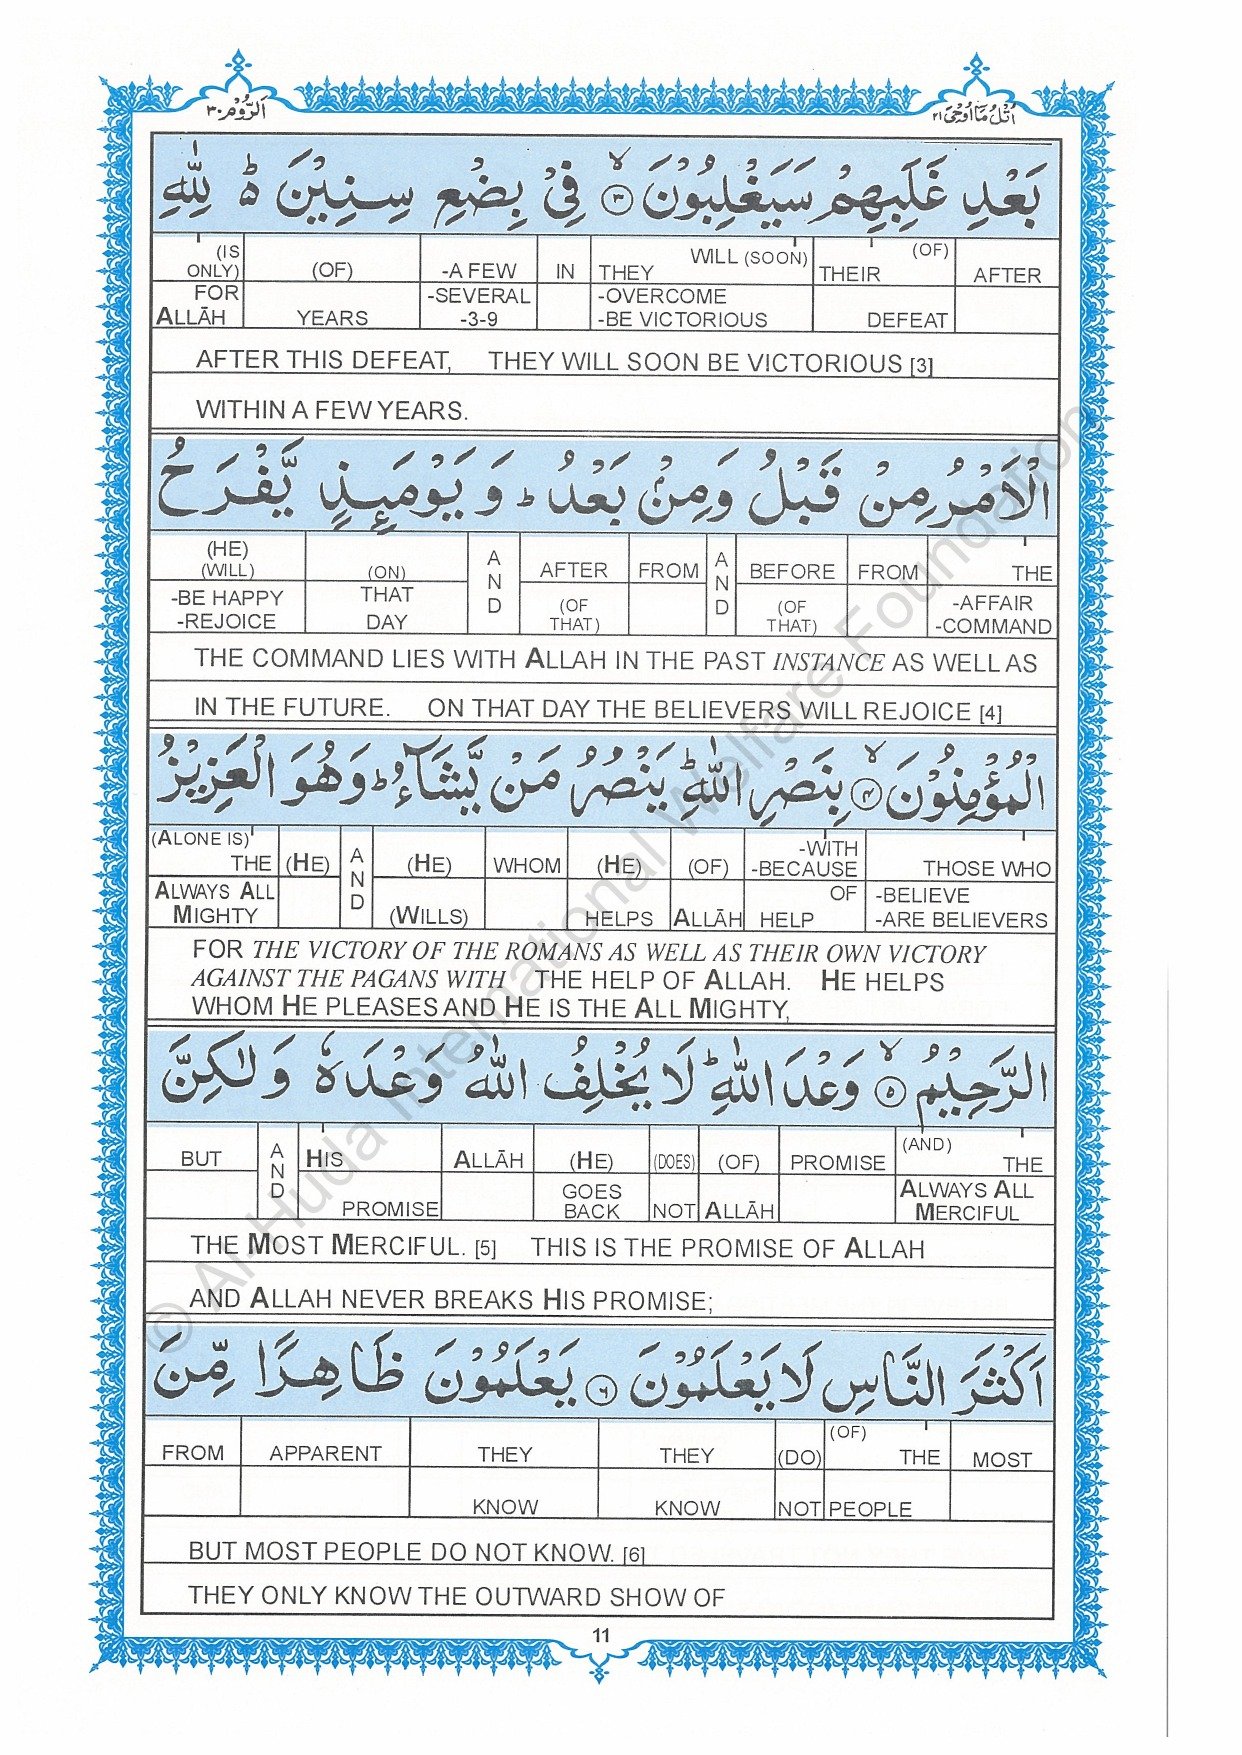 الرّوم ٣٠
اتل ما اوحي ٢١
بَعْدِ غَلَبِهِمْ سَيَغْلِبُوْنَ ۙ﴿٣﴾ فِيْ بِضْعِ سِنِيْنَ ؕ۬ لِلّٰهِ
(IS ONLY) (OF) -A FEW IN THEY WILL (SOON) THEIR (OF) AFTER
FOR ALLĀH YEARS -SEVERAL -3-9 -OVERCOME -BE VICTORIOUS DEFEAT
AFTER THIS DEFEAT, THEY WILL SOON BE VICTORIOUS [3]
WITHIN A FEW YEARS.
الْاَمْرُ مِنْ قَبْلُ وَمِنْۢ بَعْدُ ؕ وَ يَوْمَىِٕذٍ يَّفْرَحُ
(HE) (WILL) (ON) AND AFTER FROM AND BEFORE FROM THE
-BE HAPPY -REJOICE THAT DAY (OF THAT) (OF THAT) -AFFAIR -COMMAND
THE COMMAND LIES WITH ALLAH IN THE PAST INSTANCE AS WELL AS
IN THE FUTURE. ON THAT DAY THE BELIEVERS WILL REJOICE [4]
الْمُؤْمِنُوْنَ ۙ﴿٤﴾ بِنَصْرِ اللّٰهِ ؕ يَنْصُرُ مَنْ يَّشَآءُ ؕ وَهُوَ الْعَزِيْزُ
(ALONE IS) THE (HE) AND (HE) WHOM (HE) (OF) -WITH -BECAUSE THOSE WHO
ALWAYS ALL MIGHTY (WILLS) HELPS ALLĀH OF HELP -BELIEVE -ARE BELIEVERS
FOR THE VICTORY OF THE ROMANS AS WELL AS THEIR OWN VICTORY
AGAINST THE PAGANS WITH THE HELP OF ALLAH. HE HELPS
WHOM HE PLEASES AND HE IS THE ALL MIGHTY,
الرَّحِيْمُ ۙ﴿٥﴾ وَعْدَ اللّٰهِ ؕ لَا يُخْلِفُ اللّٰهُ وَعْدَهٗ وَلٰكِنَّ
BUT AND HIS ALLĀH (HE) (DOES) (OF) PROMISE (AND) THE
PROMISE GOES BACK NOT ALLĀH ALWAYS ALL MERCIFUL
THE MOST MERCIFUL. [5] THIS IS THE PROMISE OF ALLAH
AND ALLAH NEVER BREAKS HIS PROMISE;
اَكْثَرَ النَّاسِ لَا يَعْلَمُوْنَ ﴿٦﴾ يَعْلَمُوْنَ ظَاهِرًا مِّنَ
FROM APPARENT THEY THEY (DO) (OF) THE MOST
KNOW KNOW NOT PEOPLE
BUT MOST PEOPLE DO NOT KNOW. [6]
THEY ONLY KNOW THE OUTWARD SHOW OF
11
© Al-Huda International Welfare Foundation